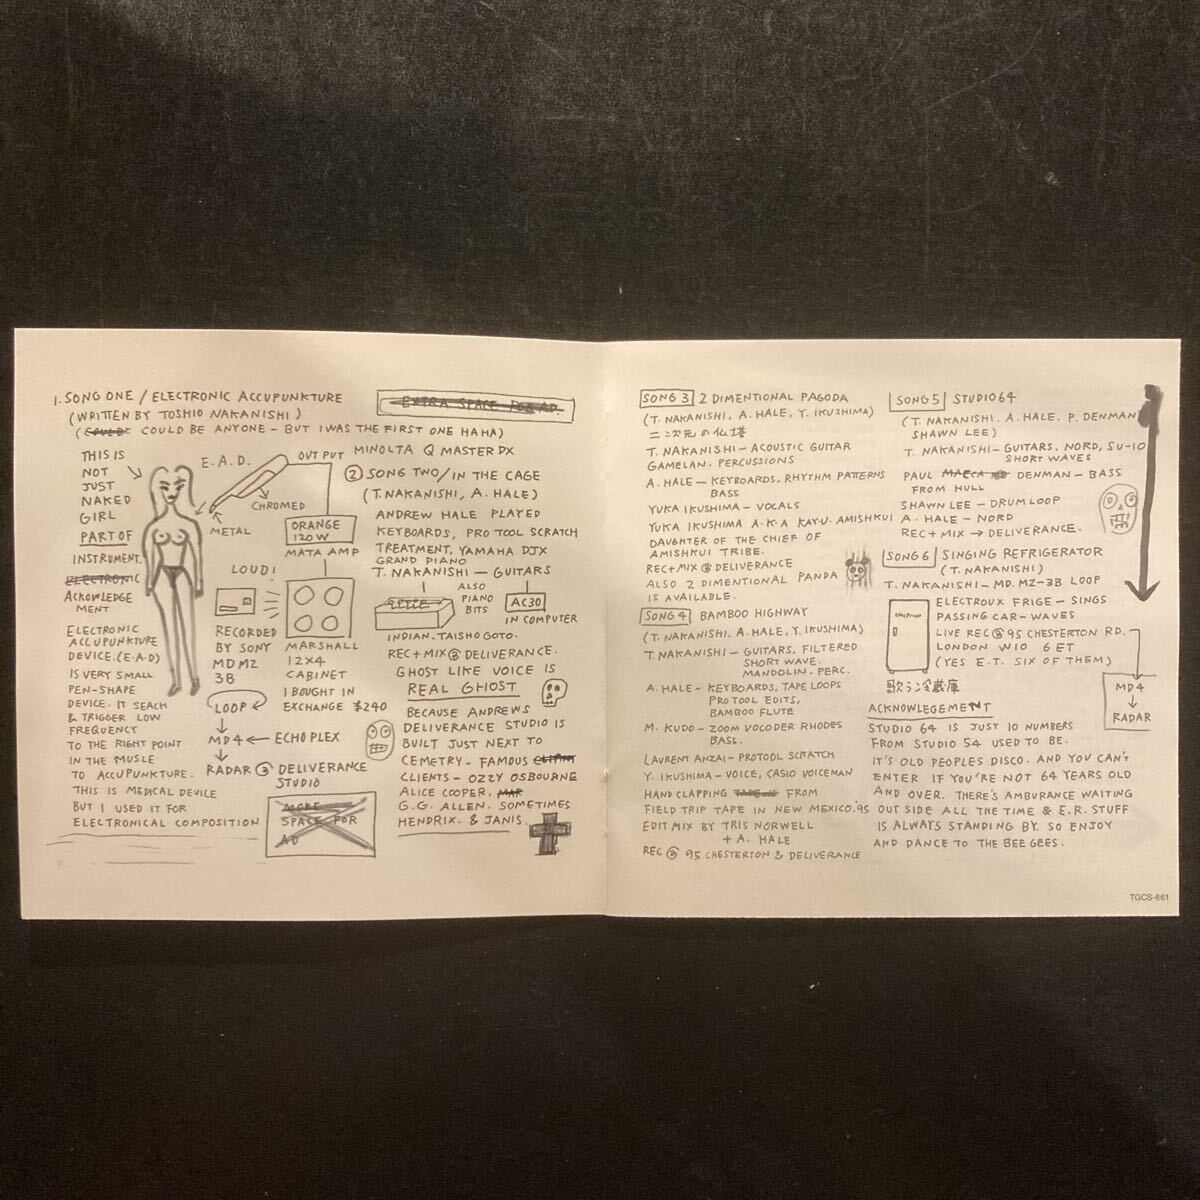 1. SONG ONE / ELECTRONIC ACCUPUNKTURE
(WRITTEN BY TOSHIO NAKANISHI)
(COULD BE COULD BE ANYONE - BUT I WAS THE FIRST ONE HAHA)
EXTRA SPACE FOR AD.
THIS IS
NOT
JUST
NAKED
GIRL
PART OF
INSTRUMENT.
ELECTRONIC
ACKOWLEDGE
MENT
ELECTRONIC
ACCUPUNCTURE
DEVICE. (E-A-D)
IS VERY SMALL
PEN-SHAPE
DEVICE. IT SEACH
& TRIGGER LOW
FREQUENCY
TO THE RIGHT POINT
IN THE MUSLE
TO ACCUPUNKTURE.
THIS IS MEDICAL DEVICE
BUT I USED IT FOR
ELECTRONICAL COMPOSITION
E.A.D.
OUT PUT
CHROMED
METAL
ORANGE
120W
MATA AMP
LOUD!
RECORDED
BY SONY
MD MZ
3B
LOOP
MD4 ← ECHOPLEX
RADAR @ DELIVERANCE
STUDIO
MARSHALL
12X4
CABINET
I BOUGHT IN
EXCHANGE $240
MORE
SPACE FOR
AD
MINOLTA Q MASTER DX
② SONG TWO / IN THE CAGE
(T. NAKANISHI, A. HALE)
ANDREW HALE PLAYED
KEYBOARDS, PRO TOOL SCRATCH
TREATMENT, YAMAHA DJX
GRAND PIANO
T. NAKANISHI — GUITARS
ALSO
PIANO
BITS
AC30
IN COMPUTER
INDIAN. TAISHO GOTO.
REC + MIX @ DELIVERANCE.
GHOST LIKE VOICE IS
REAL GHOST
BECAUSE ANDREWS
DELIVERANCE STUDIO IS
BUILT JUST NEXT TO
CEMETRY - FAMOUS
CLIENTS - OZZY OSBOURNE
ALICE COOPER, MAR
G.G. ALLEN. SOMETIMES
HENDRIX. & JANIS.
SONG 3 2 DIMENTIONAL PAGODA
(T. NAKANISHI, A. HALE, Y. IKUSHIMA)
二次元の仏塔
T. NAKANISHI - ACOUSTIC GUITAR
GAMELAN. PERCUSSIONS
A. HALE - KEYBOARDS, RHYTHM PATTERNS
BASS
YUKA IKUSHIMA - VOCALS
YUKA IKUSHIMA A·K·A KAY·U. AMISHKUI
DAUGHTER OF THE CHIEF OF
AMISHKUI TRIBE.
REC + MIX @ DELIVERANCE
ALSO 2 DIMENTIONAL PANDA
IS AVAILABLE.
SONG 4 BAMBOO HIGHWAY
(T. NAKANISHI. A. HALE, Y. IKUSHIMA)
T. NAKANISHI - GUITARS, FILTERED
SHORT WAVE.
MANDOLIN. PERC.
A. HALE - KEYBOARDS, TAPE LOOPS
PRO TOOL EDITS,
BAMBOO FLUTE
M. KUDO - ZOOM VOCODER RHODES
BASS.
LAURENT ANZAI - PROTOOL SCRATCH
Y. IKUSHIMA - VOICE, CASIO VOICEMAN
HAND CLAPPING FROM
FIELD TRIP TAPE IN NEW MEXICO.'95
EDIT MIX BY TRIS NORWELL
+ A. HALE
REC @ 95 CHESTERTON & DELIVERANCE
SONG 5 STUDIO 64
(T. NAKANISHI. A. HALE. P. DENMAN
SHAWN LEE)
T. NAKANISHI - GUITARS. NORD, SU-10
SHORT WAVES
PAUL DENMAN - BASS
FROM HULL
SHAWN LEE - DRUM LOOP
A. HALE - NORD
REC + MIX → DELIVERANCE.
SONG 6 SINGING REFRIGERATOR
(T. NAKANISHI)
T. NAKANISHI - MD. MZ-3B LOOP
ELECTROUX FRIGE - SINGS
PASSING CAR - WAVES
LIVE REC @ 95 CHESTERTON RD.
LONDON W10 6 ET
(YES E.T. SIX OF THEM)
MD4
RADAR
歌う冷蔵庫
ACKNOWLEGEMENT
STUDIO 64 IS JUST 10 NUMBERS
FROM STUDIO 54 USED TO BE.
IT'S OLD PEOPLES DISCO. AND YOU CAN'T
ENTER IF YOU'RE NOT 64 YEARS OLD
AND OVER. THERE'S AMBURANCE WAITING
OUT SIDE ALL THE TIME & E.R. STUFF
IS ALWAYS STANDING BY. SO ENJOY
AND DANCE TO THE BEE GEES.
TGCS-661